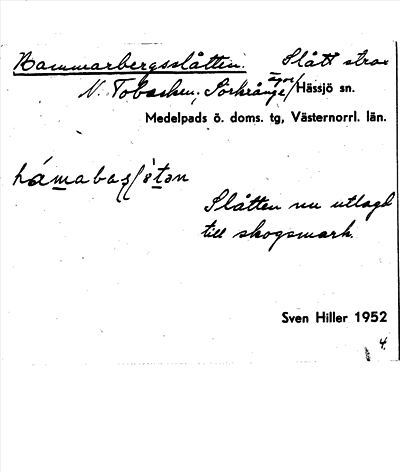 Hammarbergsslåtten. Slått strax
N. Tobacken, Sörkrånge ägor/Hässjö sn.
Medelpads ö. doms. tg, Västernorrl. län.
Slåtten nu utlagd
till skogsmark.
Sven Hiller 1952
4.